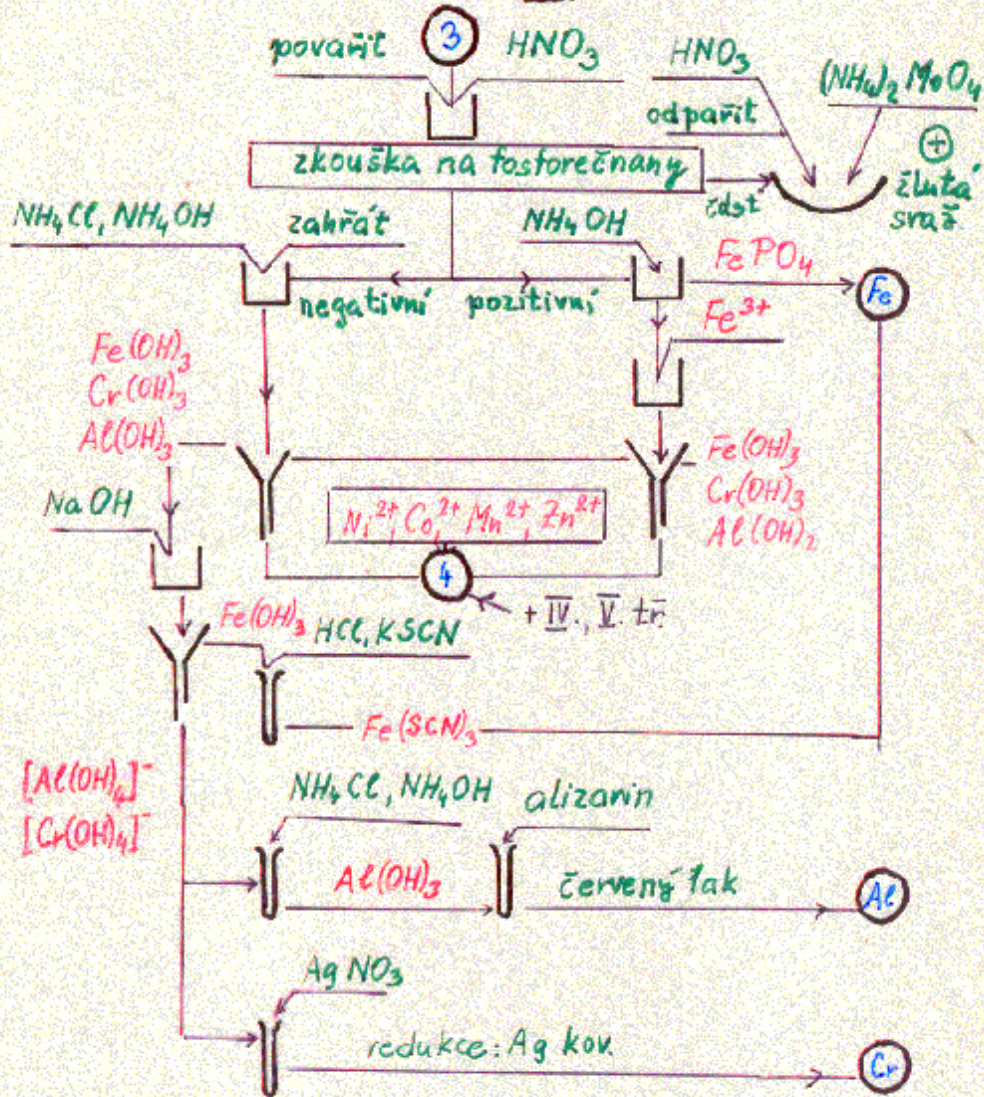 povařit
3
HNO₃
HNO₃
(NH₄)₂ MoO₄
odpařit
zkouška na fosforečnany
část
+
žlutá
sraž.
NH₄Cl, NH₄OH
zahřát
NH₄OH
FePO₄
Fe
negativní
pozitivní
Fe³⁺
Fe(OH)₃
Cr(OH)₃
Al(OH)₃
Fe(OH)₃
Cr(OH)₃
Al(OH)₂
NaOH
Ni²⁺, Co²⁺, Mn²⁺, Zn²⁺
4
+ IV., V. tř.
Fe(OH)₃
HCl, KSCN
Fe(SCN)₃
[Al(OH)₄]⁻
[Cr(OH)₄]⁻
NH₄Cl, NH₄OH
alizarin
Al(OH)₃
červený lak
Al
AgNO₃
redukce: Ag kov.
Cr